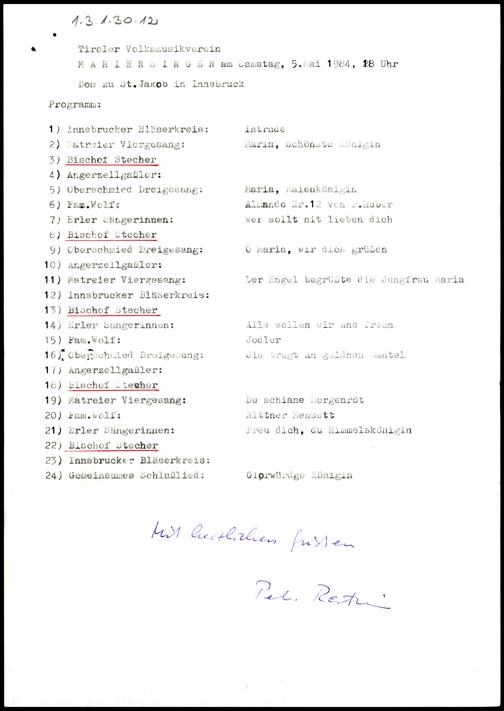 1.3.1.30.12
Tiroler Volksmusikverein
M A R I E N S I N G E N am Samstag, 5.Mai 1984, 18 Uhr
Dom zu St.Jakob in Innsbruck
Programm:
1) Innsbrucker Bläserkreis: Intrade
2) Matreier Viergesang: Maria, schönste Königin
3) Bischof Stecher
4) Angerzellgaßler:
5) Oberschmied Dreigesang: Maria, Maienkönigin
6) Fam.Wolf: Almando Nr.12 von F.Huber
7) Erler Sängerinnen: Wer sollt nit lieben dich
8) Bischof Stecher
9) Oberschmied Dreigesang: O Maria, wir dich grüßen
10) Angerzellgaßler:
11) Matreier Viergesang: Der Engel begrüßte die Jungfrau Maria
12) Innsbrucker Bläserkreis:
13) Bischof Stecher
14) Erler Sängerinnen: Alle wollen wir uns freun
15) Fam.Wolf: Jodler
16) Oberschmied Dreigesang: Sie tragt an goldnen Mantel
17) Angerzellgaßler:
18) Bischof Stecher
19) Matreier Viergesang: Du schiane Morgenröt
20) Fam.Wolf: Rittner Menuett
21) Erler Sängerinnen: Freu dich, du Himmelskönigin
22) Bischof Stecher
23) Innsbrucker Bläserkreis:
24) Gemeinsames Schlußlied: Glorwürdge Königin
Mit herzlichen Grüssen
Peter